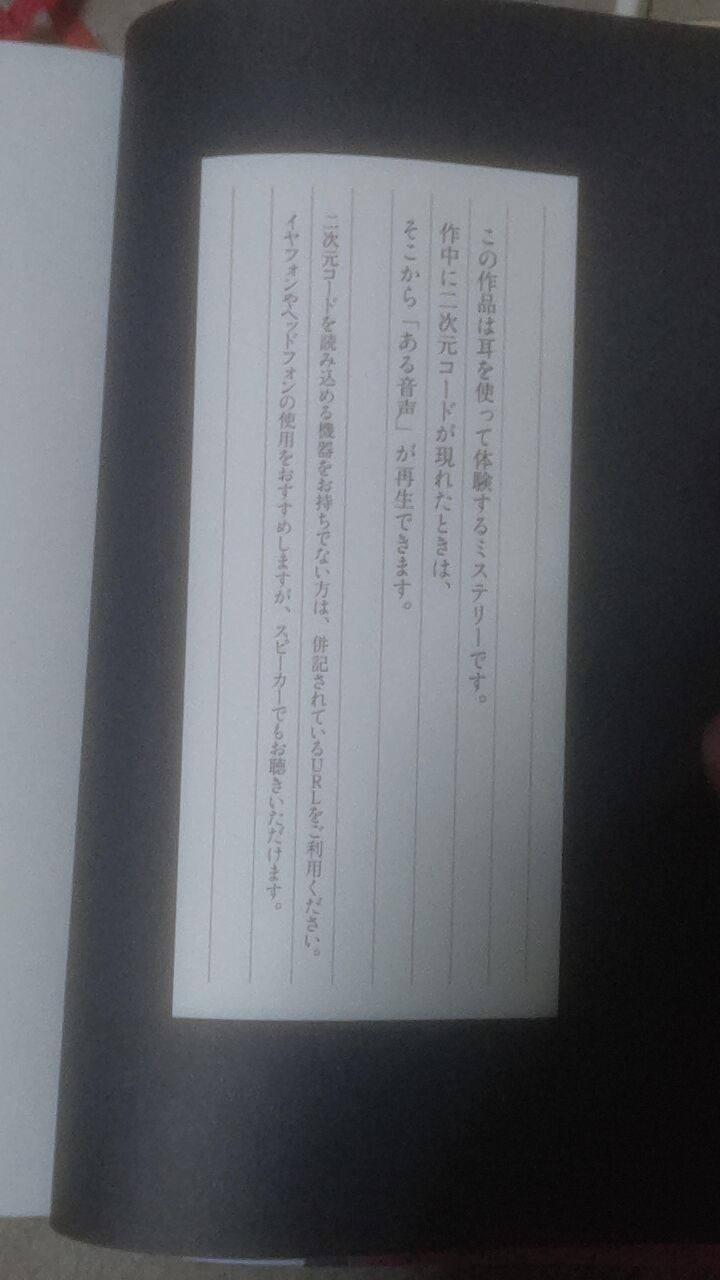 この作品は耳を使って体験するミステリーです。
作中に二次元コードが現れたときは、
そこから「ある音声」が再生できます。
二次元コードを読み込める機器をお持ちでない方は、併記されているURLをご利用ください。
イヤフォンやヘッドフォンの使用をおすすめしますが、スピーカーでもお聴きいただけます。